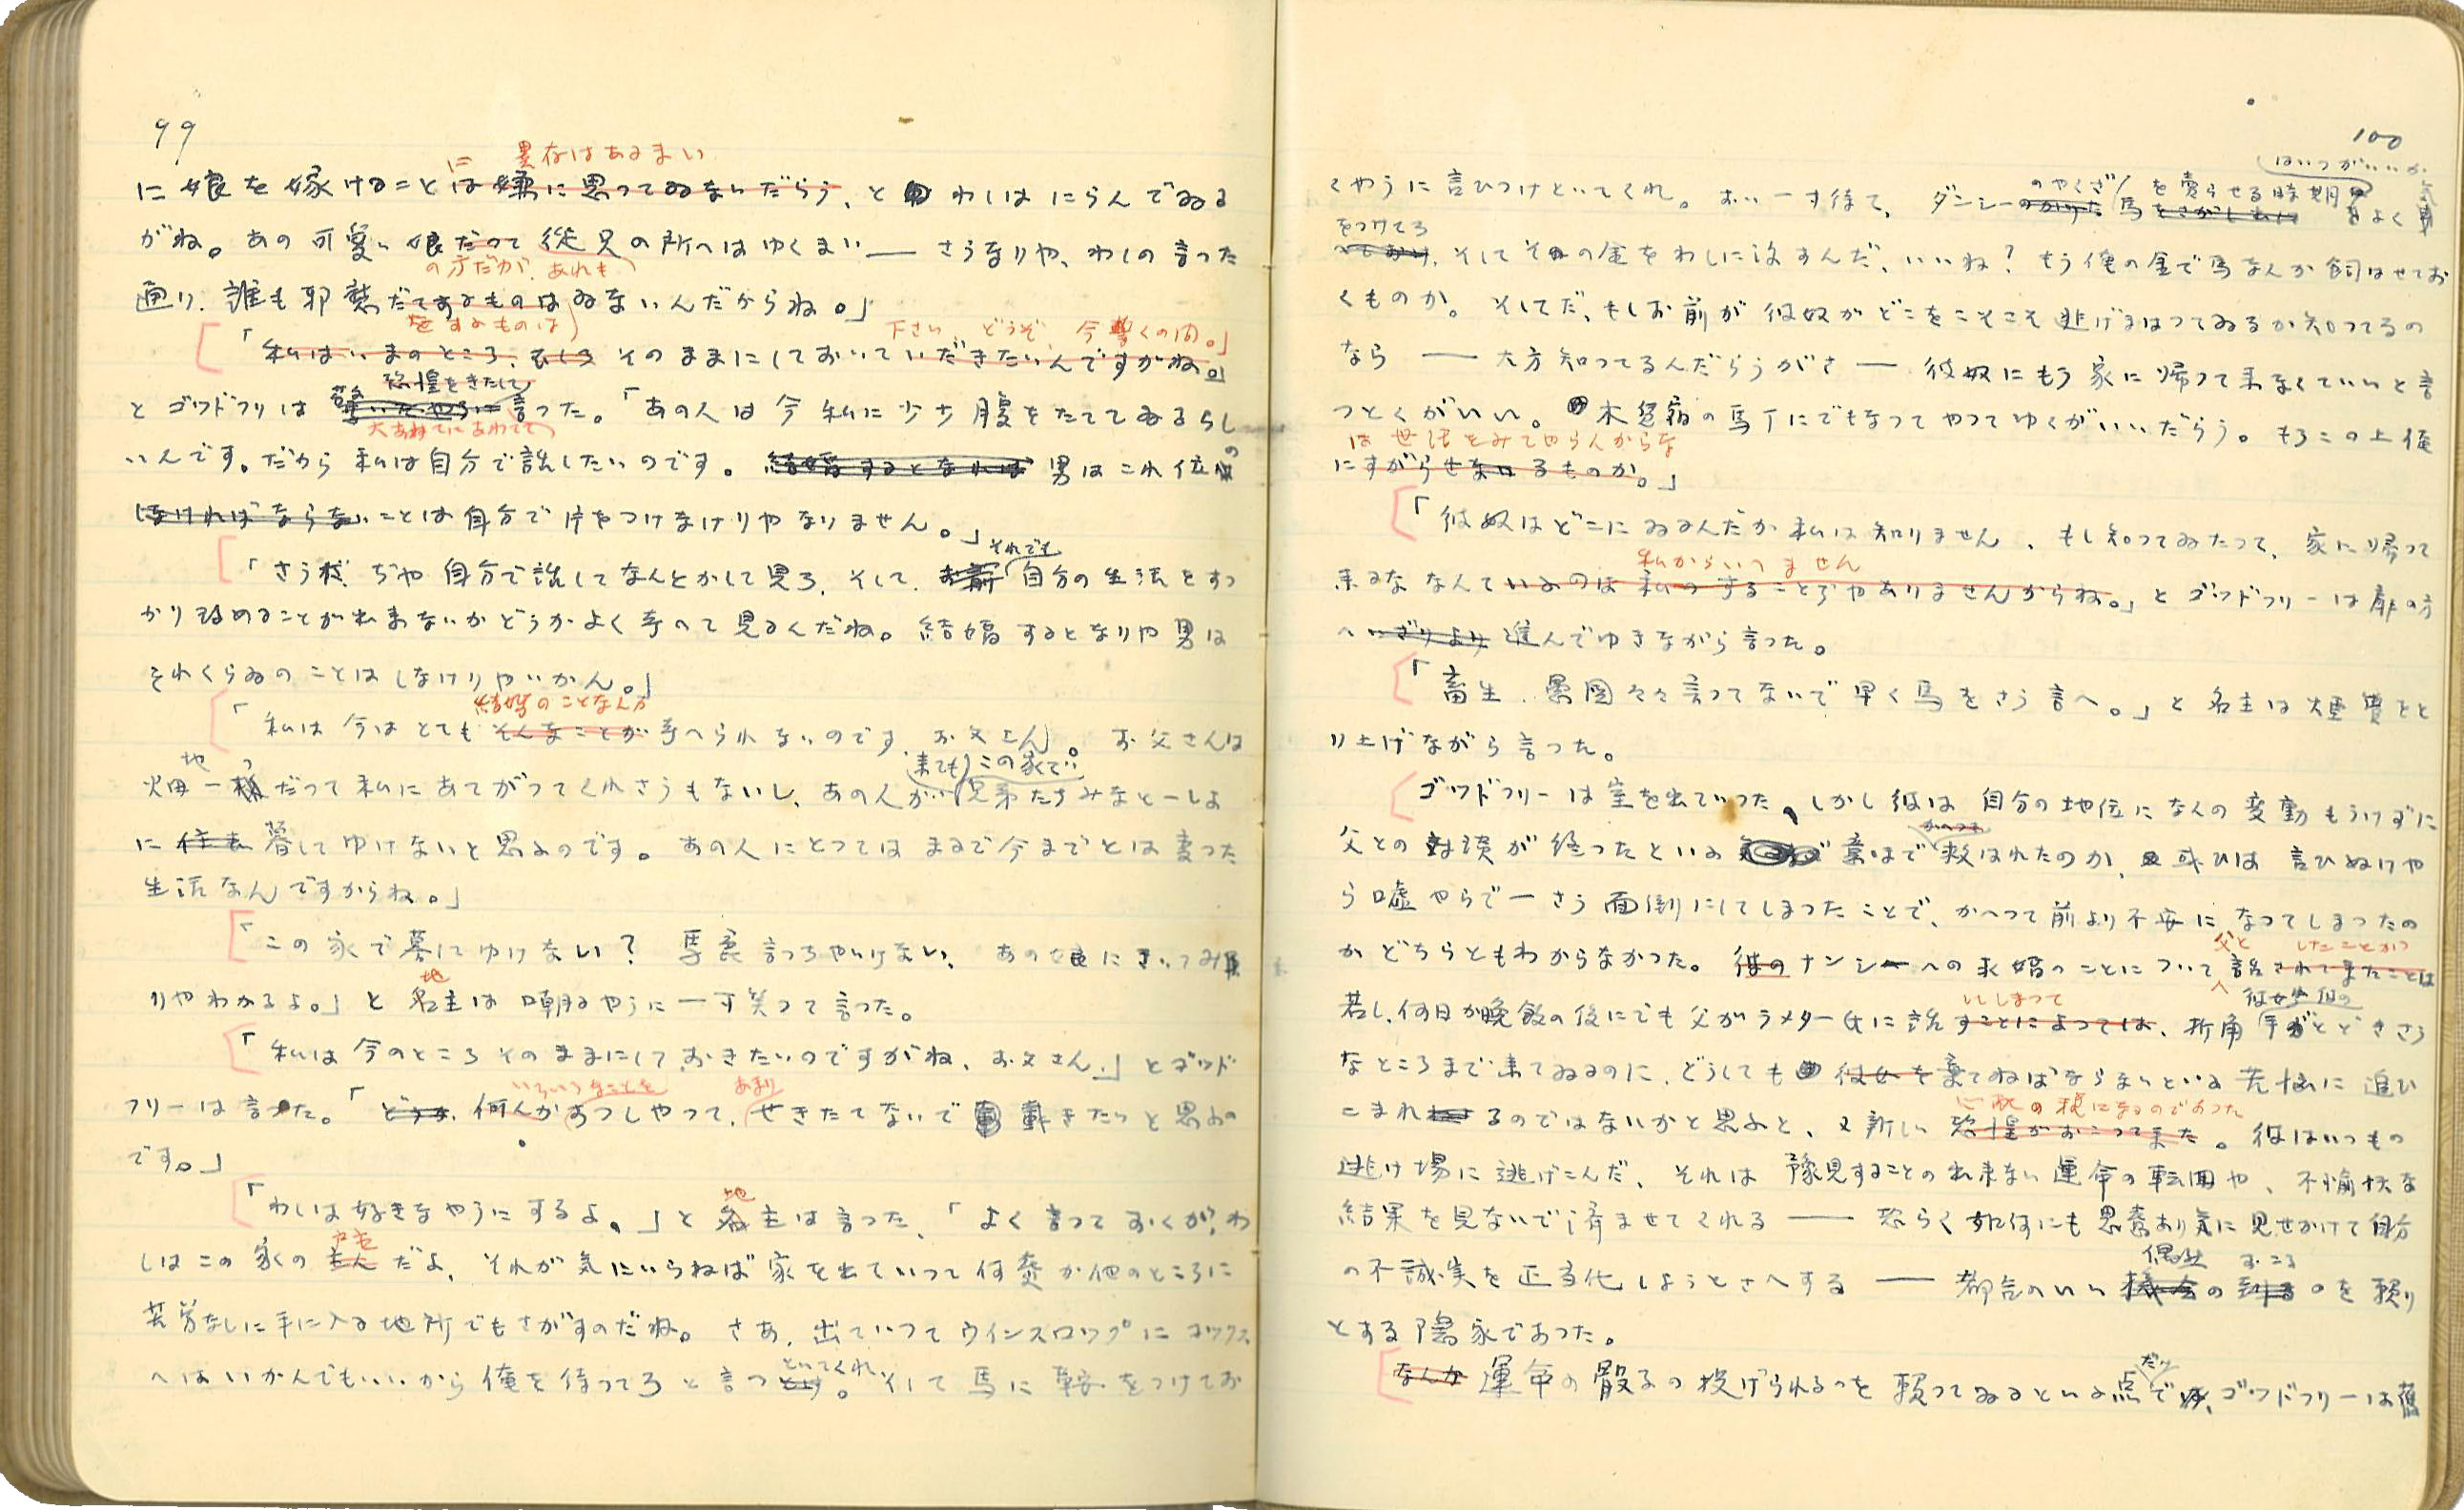 99
に 異存はあるまい
に娘を嫁けることは嫌に思つてゐないだらう、と わしはにらんでゐる
がね。あの可愛い娘だつて従兄の所へはゆくまい── さうなりや、わしの言つた
の方だが、あれも
通り、誰も邪魔だてするものはゐないんだからね。」
をするものは
下さい、どうぞ、今暫くの間。」
「私はいまのところ、むしろそのままにしておいていだきたいんですがね。」
恐惶をきたして
とゴッドフリは驚いたやうに言つた。「あの人は今私に少少腹をたててゐるらし
大あわてにあわてて
いんです。だから私は自分で話したいのです。結婚するとなれば男はこれ位の
しなければならないことは自分で片をつけなけりやなりません。」
それでも
「さうか、ぢや自分で話してなんとかして見ろ、そして、お前自分の生活をすつ
かり改めることが出来ないかどうかよく考へて見るんだね。結婚するとなりや男は
それくらゐのことはしなけりやいかん。」
結婚のことなんか
「私は今はとてもそんなことが考へられないのです、お父さん。お父さんは
地 つ
畑一枚だつて私にあてがつてくれさうもないし、あの人が兄弟たちみなと一しよ
来ても この家で
に住む暮してゆけないと思ふのです。あの人にとつてはまるで今までとは変つた
生活なんですからね。」
「この家で暮してゆけない? 馬鹿言つちやいけない、あの娘にきいてみ
りやわかるよ。」と名主は嘲るやうに一寸笑つて言つた。
地
「私は今のところそのままにしておきたいのですがね、お父さん、」とゴッド
いろいろなことを あまり
フリーは言つた。「どうか、何んかおつしやつて、せきたてないで戴きたいと思ふの
です。」
地
「わしは好きなやうにするよ、」と名主は言つた、「よく言つておくが、わ
しはこの家のもんだよ、それが気にいらねば家を出ていつて何処か他のところに
苦労なしに手に入る地所でもさがすのだね。さあ、出ていつてウインスロップにコックス
といてくれ
へはいかんでもいいから俺を待つてろと言つとけ。そして馬に鞍をつけてお
100
はいつがいいか
のやくざ を売らせる時期
くやうに言ひつけといてくれ。おい一寸待て、ダンシーのかけた馬をさがしをよく気
をつけてろ
そしてその金をわしに渡すんだ、いいね? もう俺の金で馬なんか飼はせてお
くものか。そしてだ、もしお前が彼奴がどこをこそこそ逃げまはつてゐるか知つてるの
なら ── 大方知つてるんだらうがさ ── 彼奴にもう家に帰つて来なくていいと言
つとくがいい。木賃宿の馬丁にでもなつてやつてゆくがいいだらう。もうこの上俺
は世話をみてやらんからな
にすがらせなるものか。」
「彼奴はどこにゐるんだか私は知りません、もし知つてゐたつて、家に帰つて
私からいへません
来るななんていふのは私のすることぢやありませんからね。」とゴッドフリーは扉の方
へにぢりより進んでゆきながら言つた。
「畜生、愚図々々言つてないで早く馬をさう言へ。」と名主は煙管をと
り上げながら言つた。
ゴッドフリーは室を出ていつた、しかし彼は自分の地位になんの変動もうけずに
かへつて
父との対談が終つたといふ意味で救はれたのか、或ひは言ひぬけや
ら嘘やらで一さう面倒にしてしまつたことで、かへつて前より不安になつてしまつたの
父と したことから
かどちらともわからなかつた。彼のナンシーへの求婚のことについて話されてきたことは
いしまつて 彼女 彼の
若し、何日か晩飯の後にでも父がラメター氏に話すことによつては、折角手がとどきさう
なところまで来てゐるのに、どうしても彼女を棄てねばならないといふ苦悩に追ひ
心配の種になるのであつた
こまれるのではないかと思ふと、又新しい恐惶がおこつて来た。彼はいつもの
逃げ場に逃げこんだ、それは豫見することの出来ない運命の転回や、不愉快な
結果を見ないで済ませてくれる ── 恐らく如何にも思慮あり気に見せかけて自分
偶然 おこる
の不誠実を正当化しようとさへする ── 都合のいい機会の到るのを頼り
とする隠家であつた。
だけ
なんか運命の骰子の投げられるのを頼つてゐるといふ点では、ゴッドフリーは舊